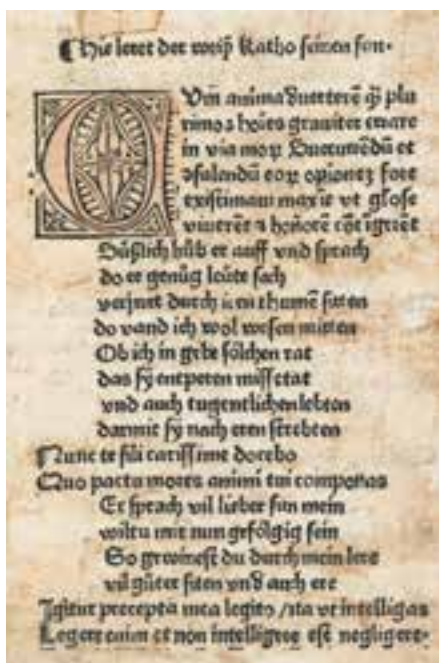 ¶ Hie leret der weiß Katho seinen sun·
CUm̄ anima Suerterē q̄ꝫ plu
rimos hoīes graviter errare
in via moꝝ Succurrēdū et
ꝯsulendū eoꝝ opionez fore
existimaui maxīe vt glose
viuerēt ⁊ honorē cōtīgrēt
Süßlich hüb er auff vnd sprach
do er genüg leüte sach
veriret durch iren thumē sitten
do vand ich wol wesen mitten
Ob ich in gebe sölchen rat
das sy entpeten missetat
vnd auch tugentlichen lebten
darmit sy nach eren strebten
Nunc te fili carissime docebo
Quo pacto mores animi tui componas
Er sprach vil lieber sun mein
wiltu mir nun gefölgig sein
So gewinest du durch mein lere
vil güter siten vnd auch ere
Igitur precepta mea legito /ita vt intelligas
Legere enim et non intelligere est negligere·